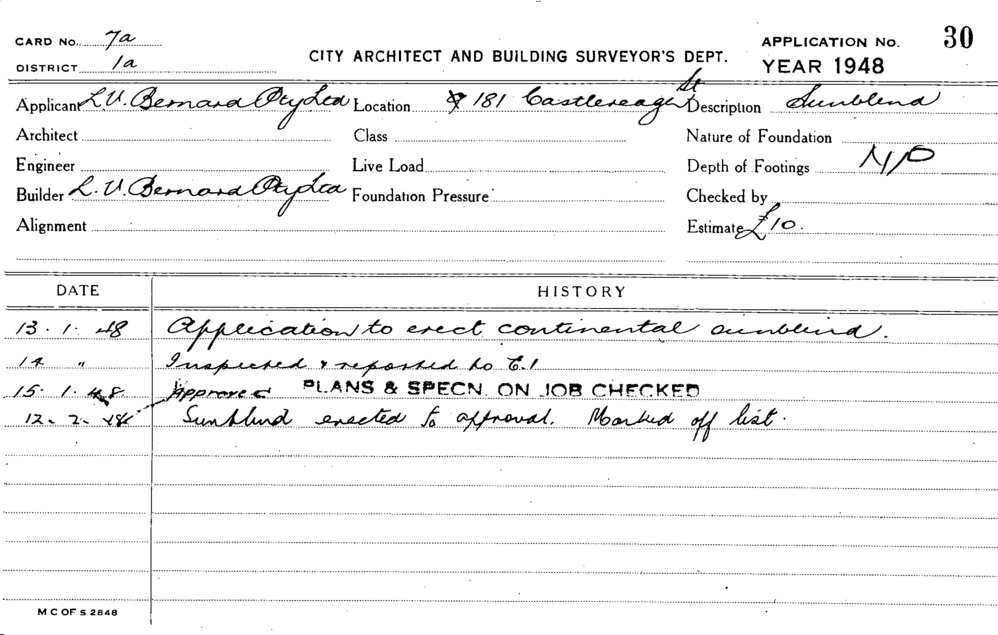 CARD No. 7a
DISTRICT 1a
CITY ARCHITECT AND BUILDING SURVEYOR'S DEPT.
APPLICATION No. 30
YEAR 1948
Applicant L.V. Bernard Pty Ltd Location 181 Castlereagh St Description Sunblind
Architect Class Nature of Foundation
Engineer Live Load Depth of Footings N/P
Builder L.V. Bernard Pty Ltd Foundation Pressure Checked by
Alignment Estimate £10.
DATE HISTORY
13.1.48 Application to erect continental sunblind.
14 " Inspected & reported to C.I
15.1.48 Approved PLANS & SPECN. ON JOB CHECKED
12.2.48 Sunblind erected to approval. Marked off list.
M C OF S 2848